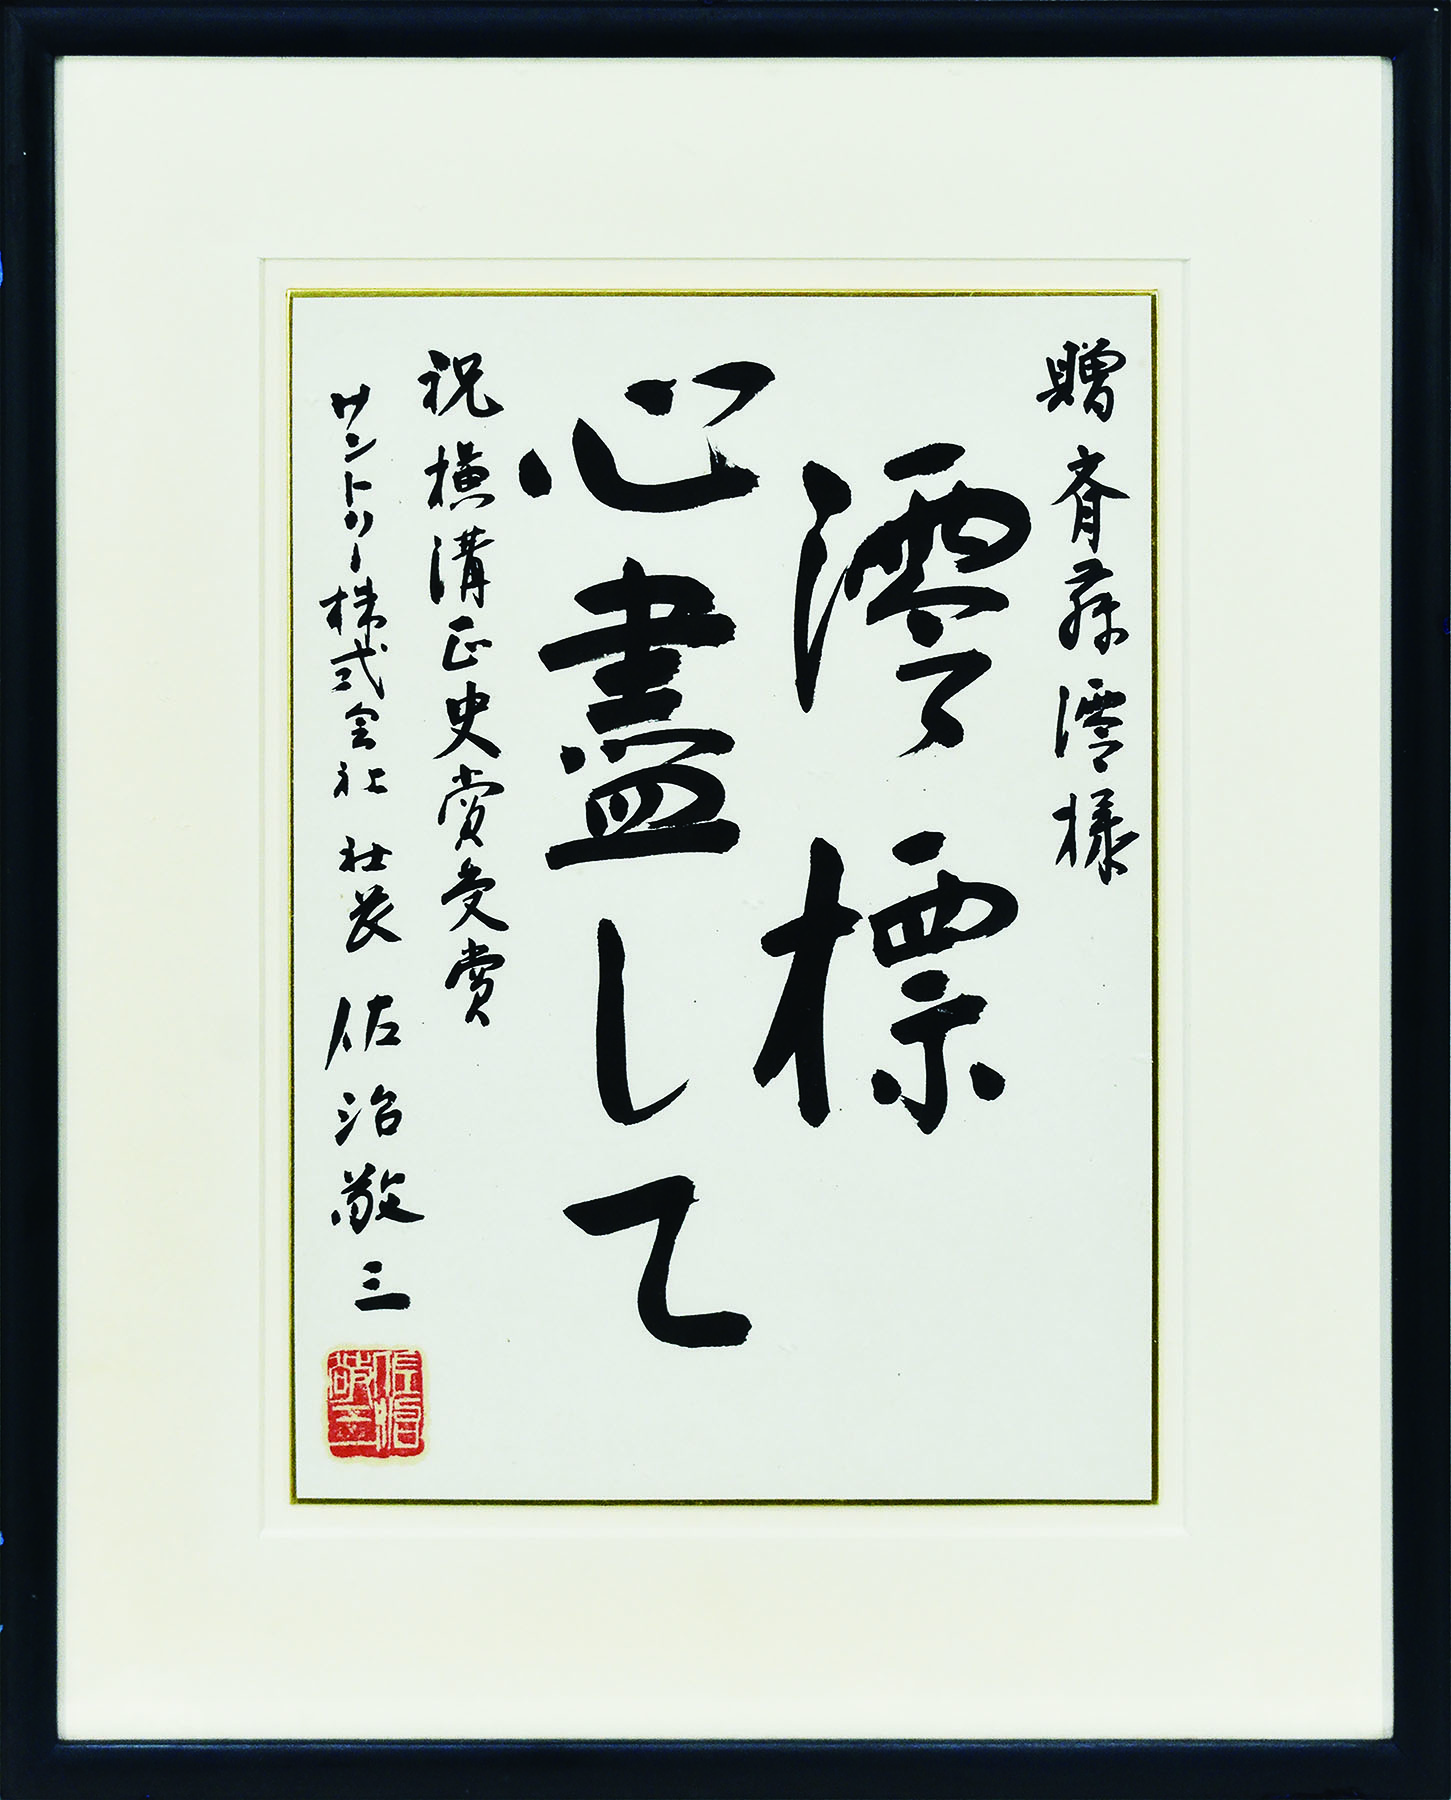 贈 斉藤澪様
澪標
心盡して
祝 横溝正史賞受賞
サントリー株式会社 社長 佐治敬三
佐治敬三